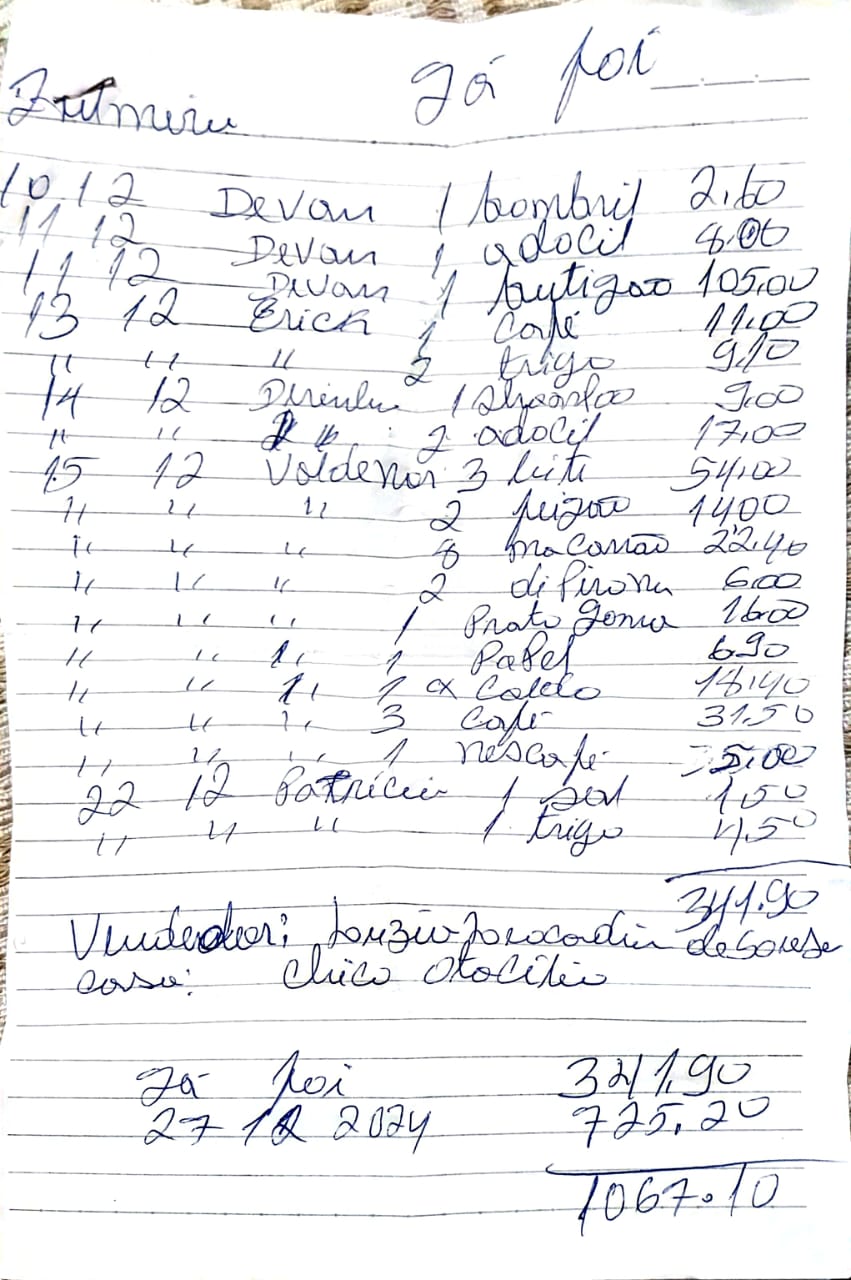 Já foi
Zulmira
10 12 Devan 1 bombril 2,60
11 12 Devan 1 adocil 8,00
11 12 Devan 1 butigao 105,00
13 12 Erick 1 Café 11,00
" " " 2 trigo 9,10
14 12 1 9,00
" " " 2 adocil 17,00
15 12 Valdenor 3 leite 54,00
" " " 2 feijão 14,00
" " " 8 macarrão 22,40
" " " 2 dipirona 6,00
" " " 1 Prato goma 16,00
" " " 1 Papel 6,90
" " " 1 cx Caldo 18,40
" " " 3 Café 31,50
" " " 1 nescafé 5,00
22 12 Patricia 1 sal 1,50
" " " 1 trigo 4,50
341.90
Vendedor:
casa: Chico Otacilio
Já foi 341,90
27 12 2024 725.20
1067.10